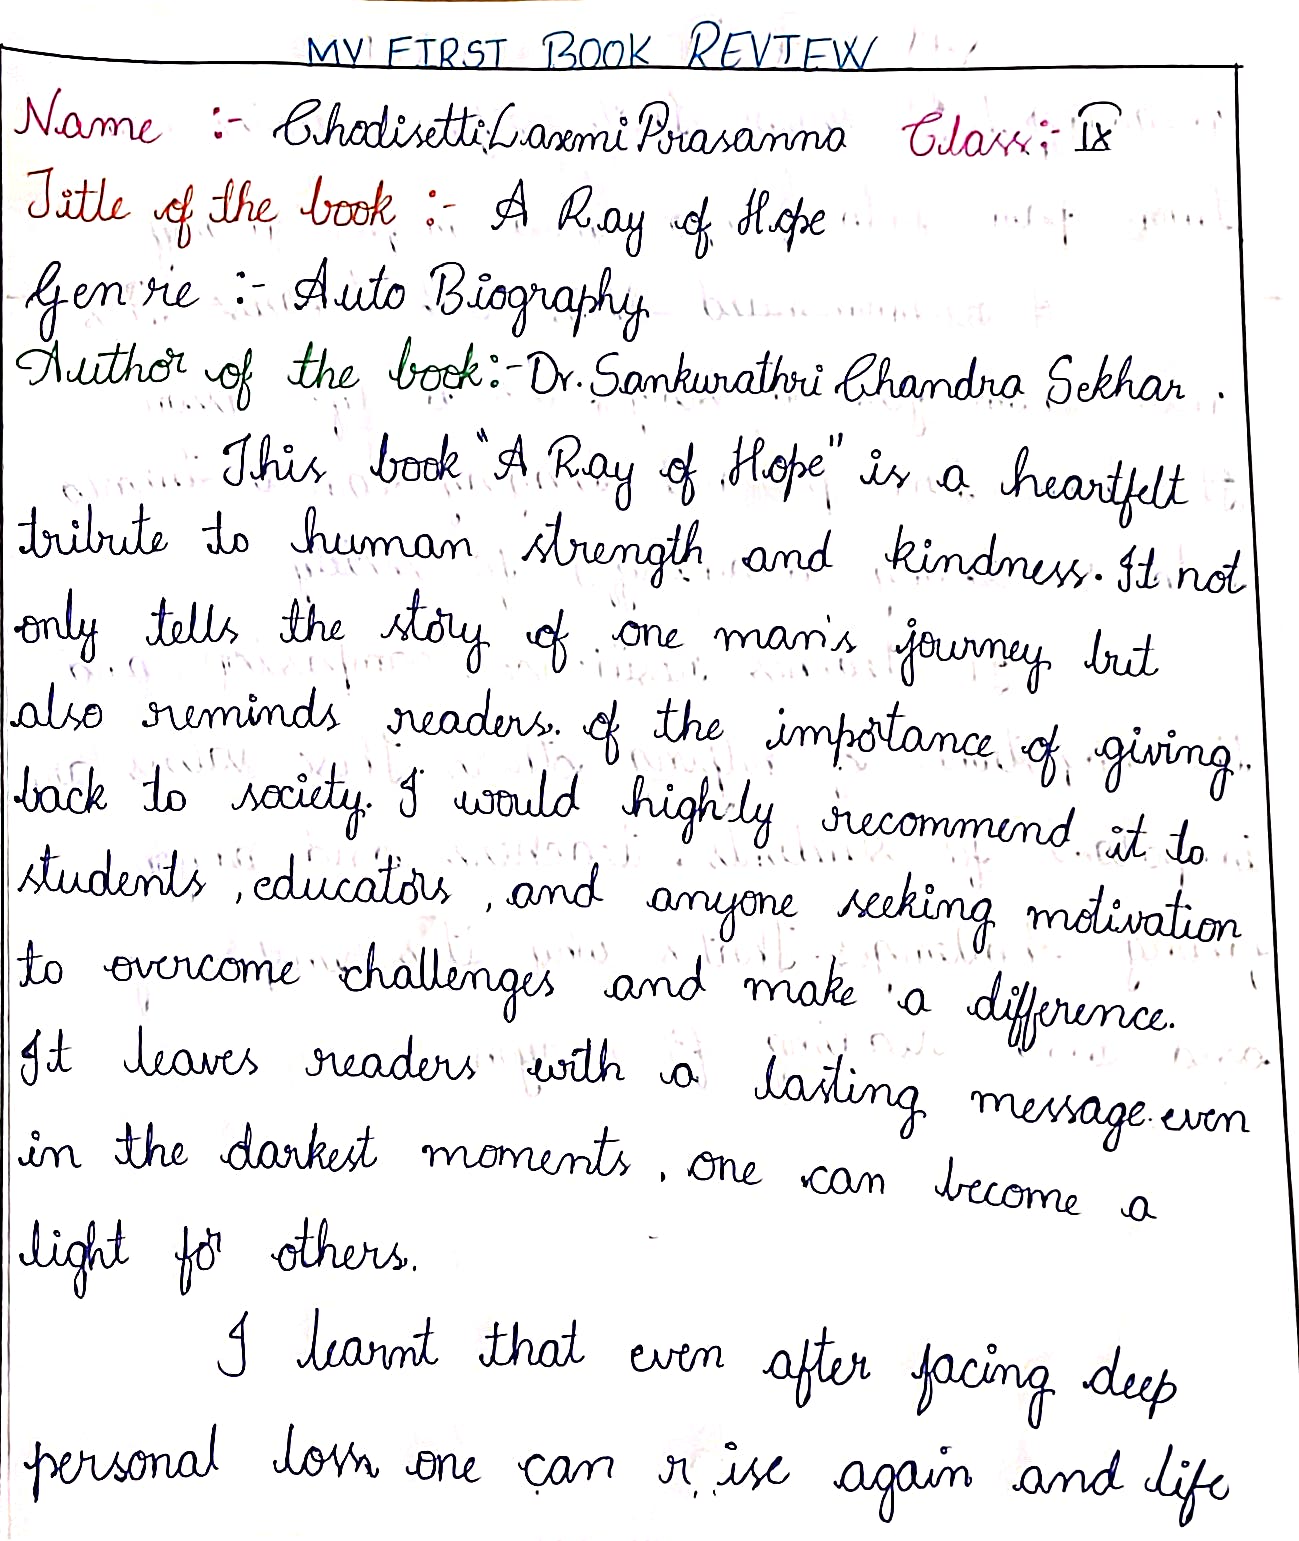 MY FIRST BOOK REVIEW
Name :- Chodisetti Laxmi Prasanna Class:- IX
Title of the book :- A Ray of Hope
Genre :- Auto Biography
Author of the book:- Dr. Sankurathri Chandra Sekhar .
This book "A Ray of Hope" is a heartfelt
tribute to human strength and kindness. It not
only tells the story of one man's journey but
also reminds readers of the importance of giving
back to society. I would highly recommend it to
students, educators, and anyone seeking motivation
to overcome challenges and make a difference.
It leaves readers with a lasting message even
in the darkest moments, one can become a
light for others.
I learnt that even after facing deep
personal loss one can rise again and life